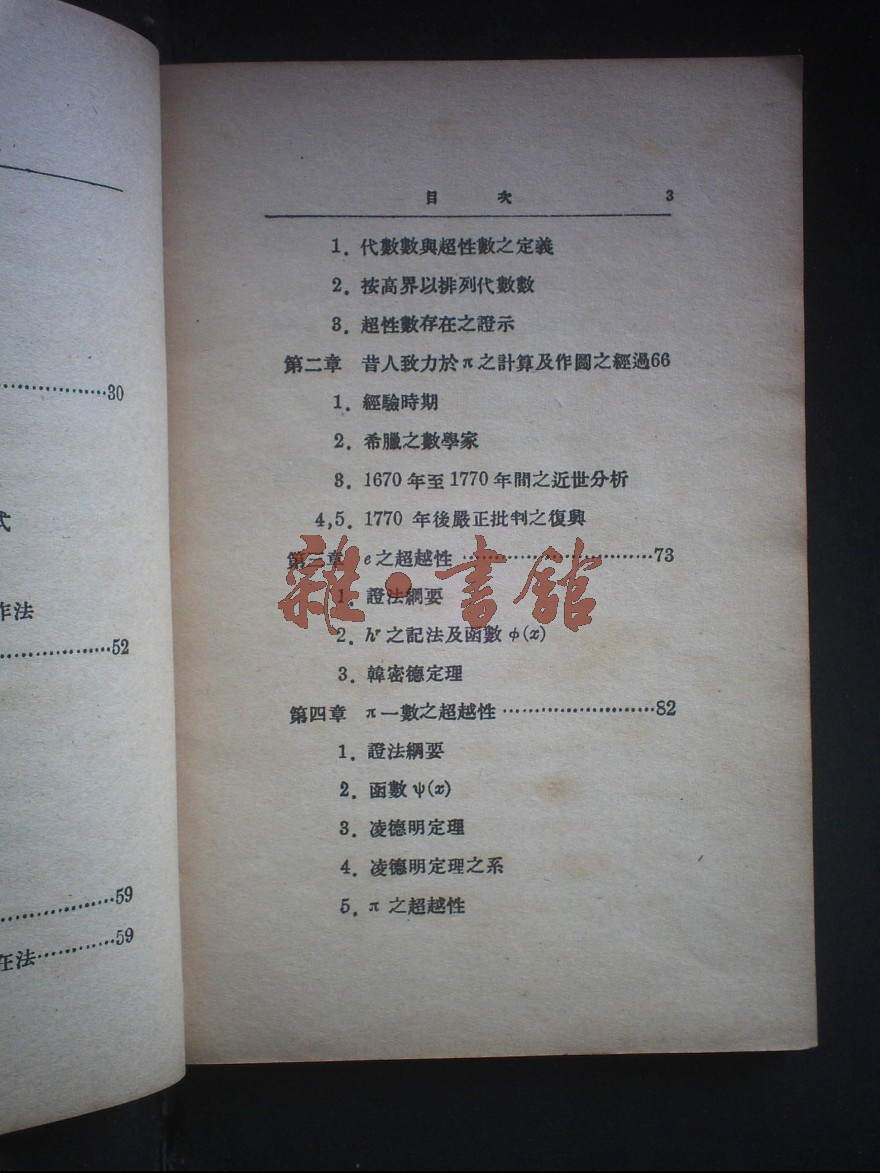 30
式
作法
52
59
在法 59
目 次 3
1. 代數數與超性數之定義
2. 按高界以排列代數數
3. 超性數存在之證示
第二章 昔人致力於π之計算及作圖之經過66
1. 經驗時期
2. 希臘之數學家
3. 1670年至1770年間之近世分析
4,5. 1770年後嚴正批判之復興
第三章 e之超越性 ……………………73
1. 證法綱要
2. hʳ之記法及函數φ(x)
3. 韓密德定理
第四章 π一數之超越性 ……………………82
1. 證法綱要
2. 函數ψ(x)
3. 凌德明定理
4. 凌德明定理之系
5. π之超越性
雜·書館